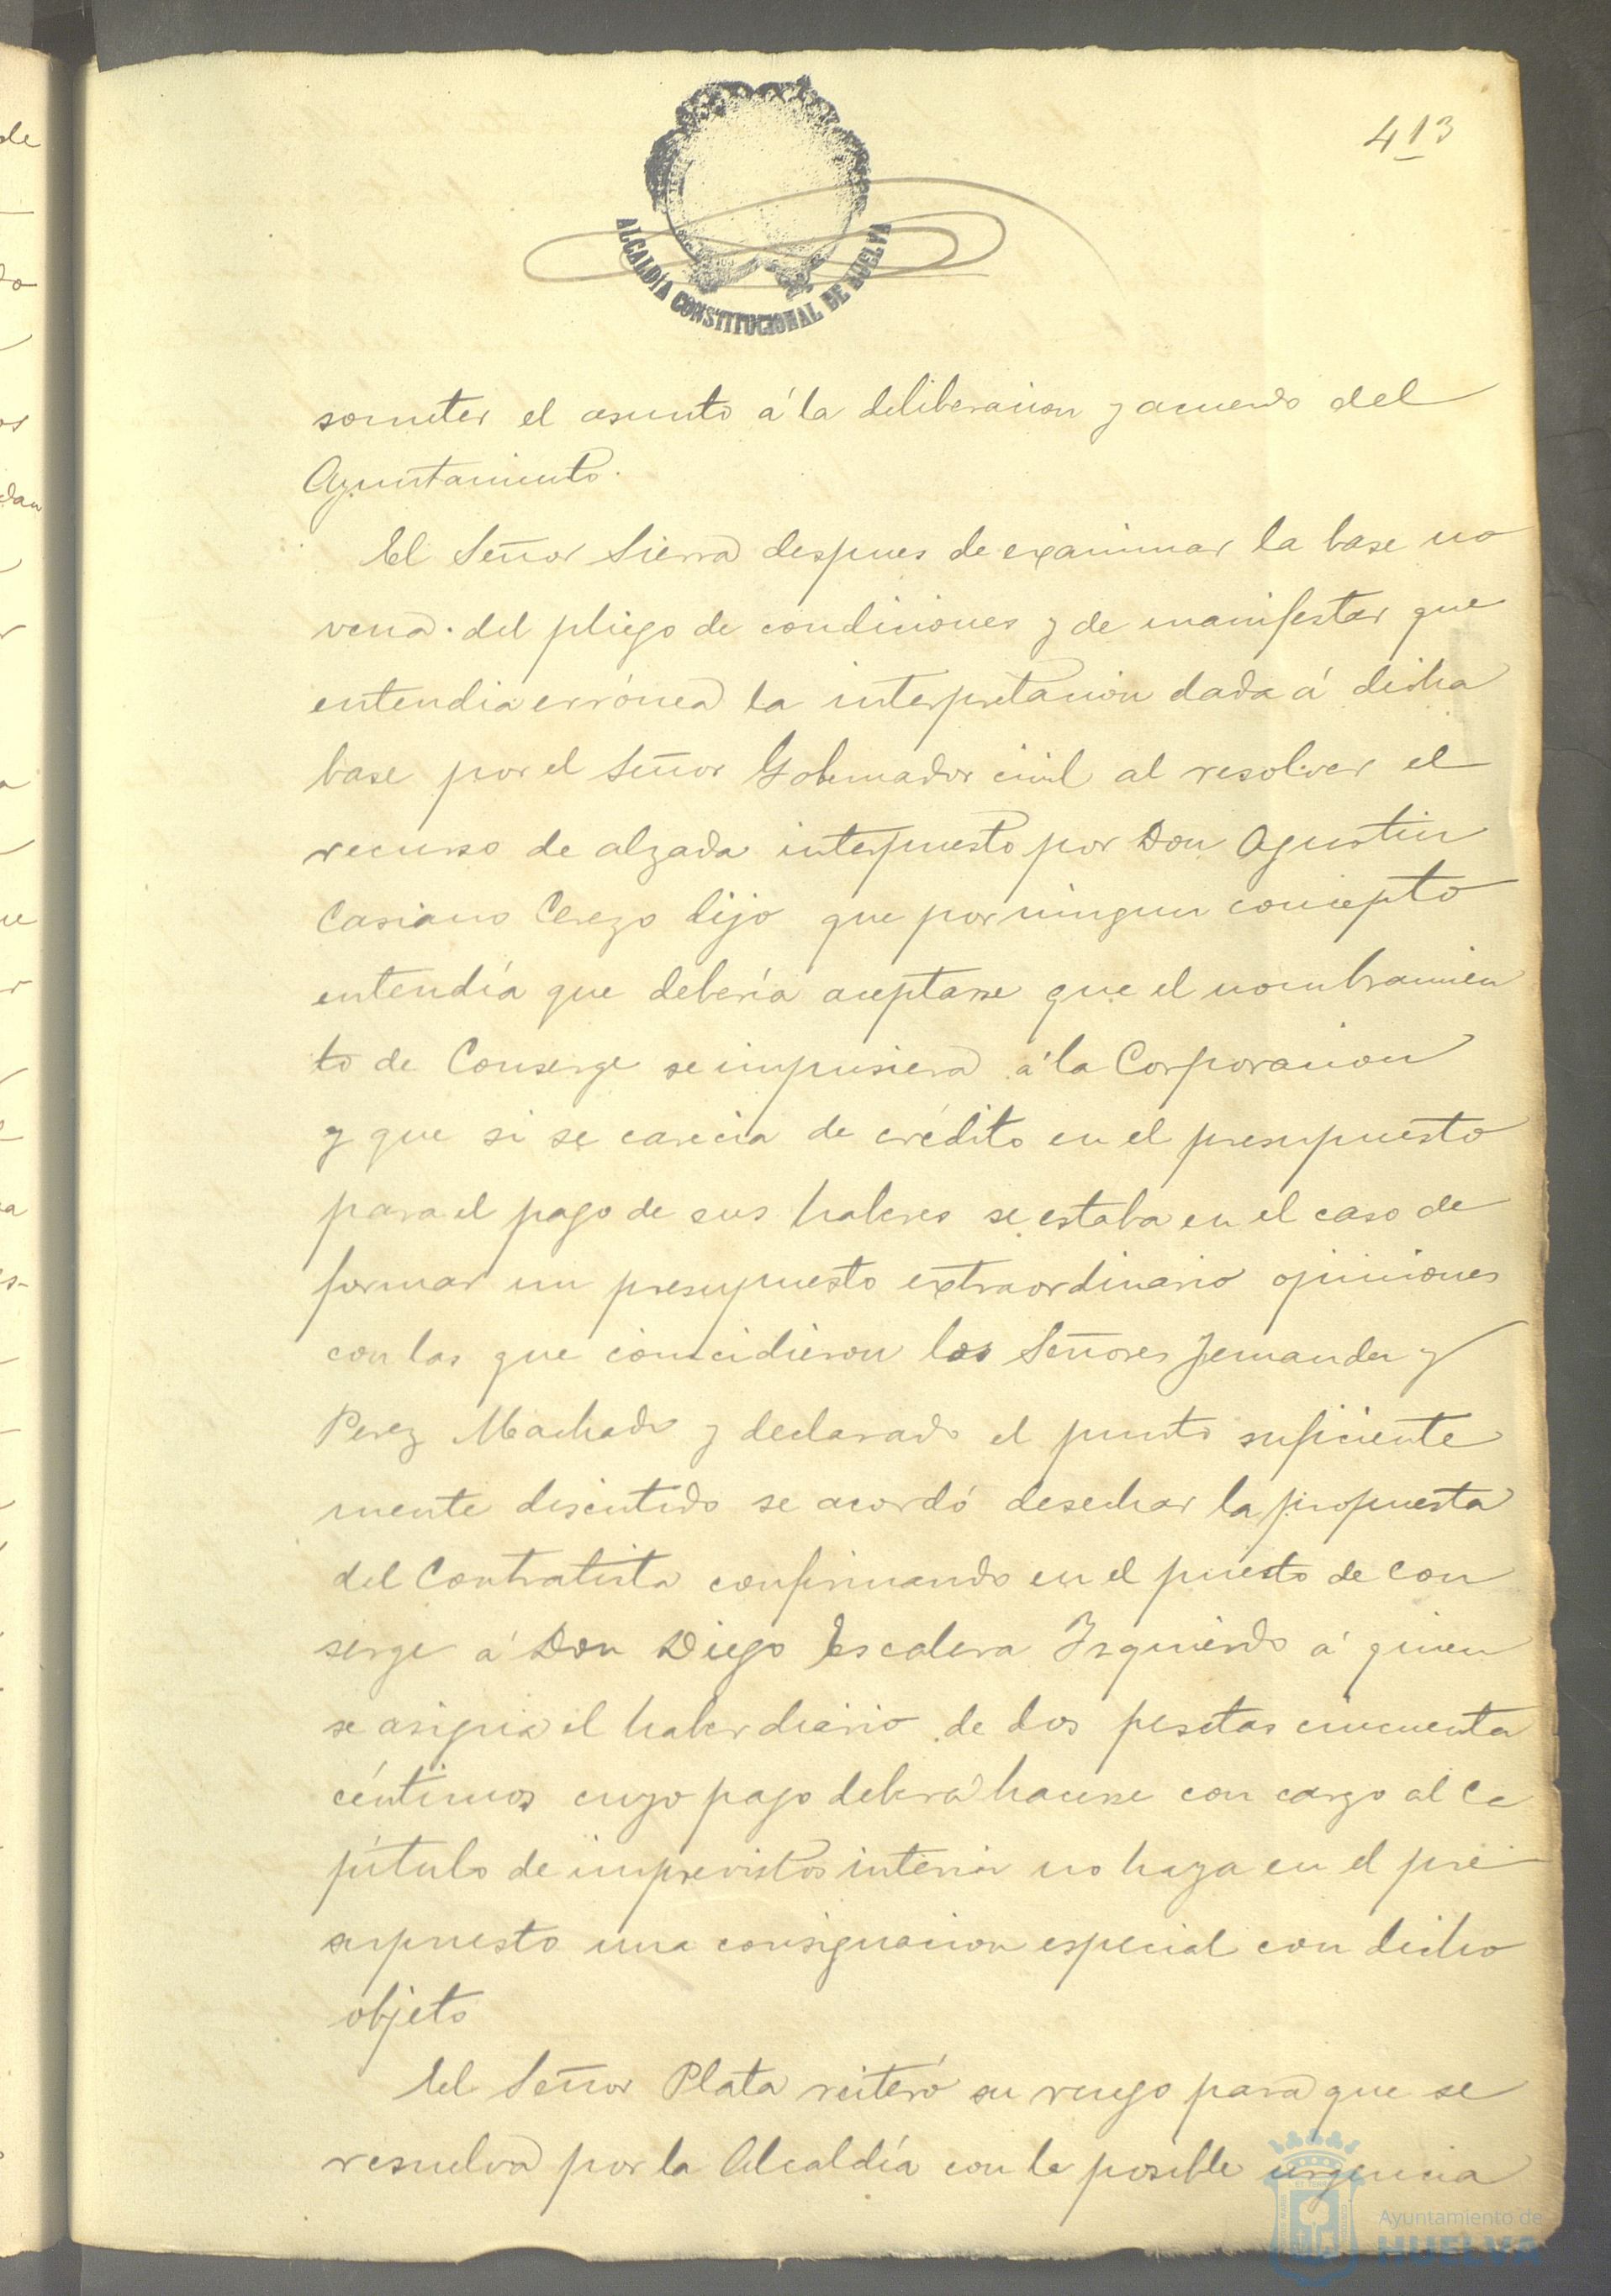 413
ALCALDÍA CONSTITUCIONAL DE HUELVA
someter el asunto á la deliberacion y acuerdo del
Ayuntamiento.
El Señor Sierra despues de examinar la base no
vena del pliego de condiciones y de manifestar que
entendia errónea la interpretación dada á dicha
base por el Señor Gobernador civil al resolver el
recurso de alzada interpuesto por Don Agustin
Casiano Cerezo dijo que por ningun concepto
entendía que debería aceptarse que el nombramien
to de Conserge se impusiera á la Corporacion
y que si se carecia de crédito en el presupuesto
para el pago de sus haberes se estaba en el caso de
formar un presupuesto extraordinario opiniones
con las que coincidieron los Señores Fernandez y
Perez Machado y declarado el punto suficiente
mente discutido se acordó desechar la propuesta
del Contratista confirmando en el puesto de Con
serge á Don Diego Escalera Izquierdo á quien
se asigna el haber diario de dos pesetas cincuenta
céntimos cuyo pago deberá hacerse con cargo al Ca
pítulo de imprevistos interin no haya en el pre
supuesto una consignacion especial con dicho
objeto
El Señor Plata reiteró su ruego para que se
resuelva por la Alcaldía con la posible urgencia
Ayuntamiento de
HUELVA